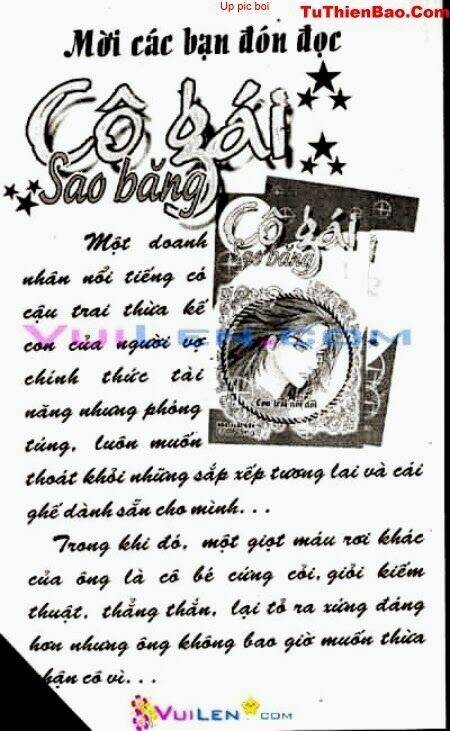 Up pic boi
TuThienBao.Com
Mời các bạn đón đọc
Cô gái
Sao băng
Cô gái
Sao băng
Con trai nối dõi
Một doanh
nhân nổi tiếng có
cậu trai thừa kế
VuiLen.com
con của người vợ
chính thức tài
năng nhưng phóng
túng, luôn muốn
thoát khỏi những sắp xếp tương lai và cái
ghế dành sẵn cho mình...
Trong khi đó, một giọt máu rơi khác
của ông là cô bé cứng cỏi, giỏi kiếm
thuật, thẳng thắn, lại tỏ ra xứng đáng
hơn nhưng ông không bao giờ muốn thừa
nhận cô vì...
VuiLen.com